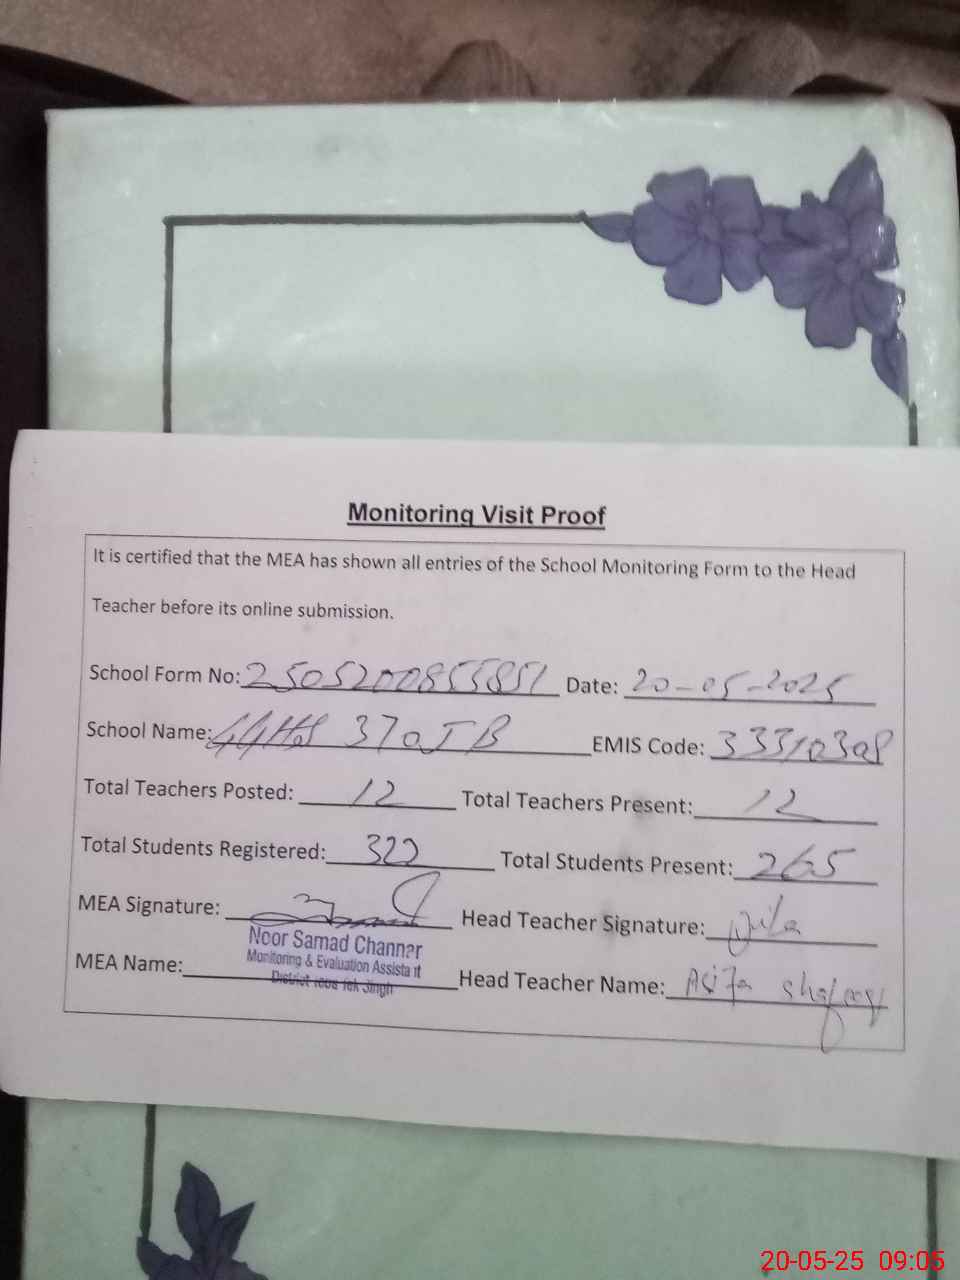 Monitoring Visit Proof
It is certified that the MEA has shown all entries of the School Monitoring Form to the Head
Teacher before its online submission.
School Form No: 2505200855851 Date: 20-05-2025
School Name: GGHS 370 JB EMIS Code: 33310308
Total Teachers Posted: 12 Total Teachers Present: 12
Total Students Registered: 322 Total Students Present: 265
MEA Signature: Head Teacher Signature:
Noor Samad Channar
Monitoring & Evaluation Assistant
District Toba Tek Singh
MEA Name: Head Teacher Name: Asifa
20-05-25 09:05